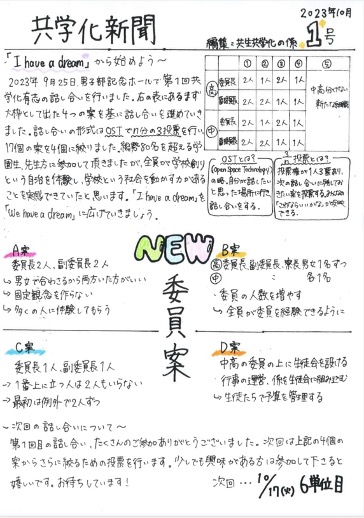 2023年10月
共学化新聞
編集：共生共学化の係
1号
「I have a dream」から始めよう～
2023年9月25日、男子部記念ホールで第1回共
学化有志の話し合いを行いました。右の表にあるます
大枠として出た4つの案を基に話し合いを進めていき
ました。話し合いの形式はOSTでn分の3投票を行い、
17個の案を4個に絞りました。総勢80名を超える学
園生、先生方に参加して頂きましたが、全員が学校創り
という自治を体験し、学校という社会を動かす力がある
ことを実感できていたと思います。「I have a dream」を
「We have a dream」に広げていきましょう。
① ② ③ ④ ⑤
高 委員長 2人 1人 2人 1人
副委員長 2人 1人 1人 2人
中 委員長 2人 1人 2人 1人
副委員長 2人 1人 1人 2人
中高分けない
新たな組織
OSTとは？
(Open Space Technology)
の略。自分が話したい
と思った場所に行き
話し合いをする。
投票とは？
NEW
委員案
A案
委員長2人、副委員長2人
→ 男女で合わさるから両方いた方がいい
→ 固定観念を作らない
→ 多くの人に体験してもらう
B案
高 委員長、副委員長、寮長男女1名ずつ
中 〃 各1名
・委員の人数を増やす
→ 全員が委員を経験できるように
C案
委員長1人、副委員長1人
→ 1番上に立つ人は2人もいらない
→ 最初は例外で2人ずつ
D案
中高の委員の上に生徒会を設ける
行事の運営、係を生徒会に組み込む
→ 生徒たちで予算を管理する
～次回の話し合いについて～
第1回目の話し合い、たくさんのご参加ありがとうございました。次回は上記の4個の
案からさらに絞るための投票を行います。少しでも興味がある方は参加して下さると
嬉しいです。お待ちしています！
次回…10/17(火) 6単位目